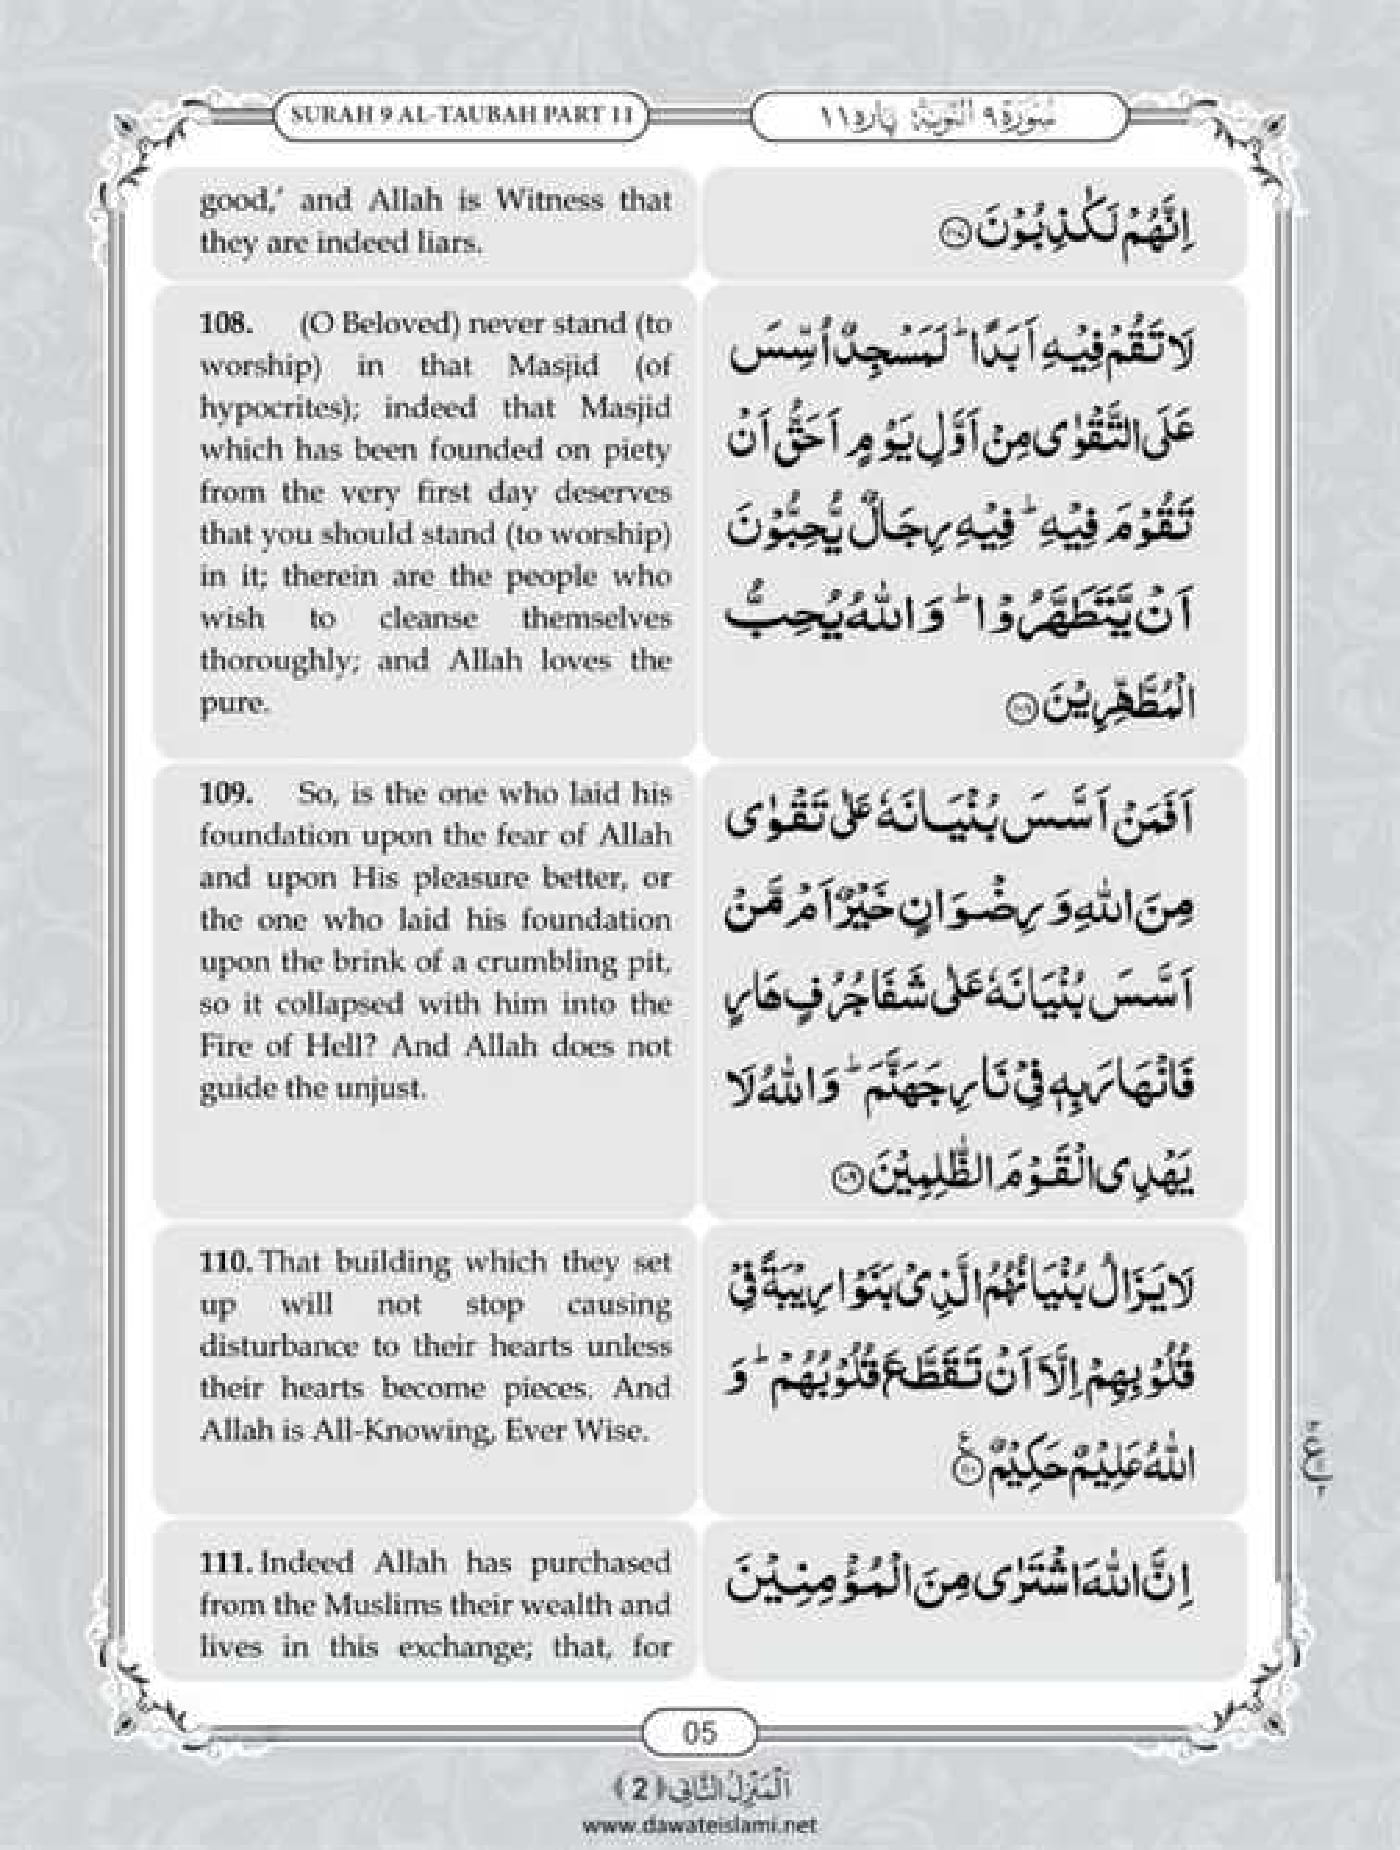 SURAH 9 AL-TAUBAH PART 11
سُوْرَةُ ٩ التَّوْبَة پاره ١١
good,’ and Allah is Witness that
they are indeed liars.
اِنَّهُمْ لَكٰذِبُوْنَ
108. (O Beloved) never stand (to
worship) in that Masjid (of
hypocrites); indeed that Masjid
which has been founded on piety
from the very first day deserves
that you should stand (to worship)
in it; therein are the people who
wish to cleanse themselves
thoroughly; and Allah loves the
pure.
لَا تَقُمْ فِيْهِ اَبَدًا ؕ لَمَسْجِدٌ اُسِّسَ
عَلَى التَّقْوٰى مِنْ اَوَّلِ يَوْمٍ اَحَقُّ اَنْ
تَقُوْمَ فِيْهِ ؕ فِيْهِ رِجَالٌ يُّحِبُّوْنَ
اَنْ يَّتَطَهَّرُوْا ؕ وَ اللّٰهُ يُحِبُّ
الْمُطَّهِّرِيْنَ
109. So, is the one who laid his
foundation upon the fear of Allah
and upon His pleasure better, or
the one who laid his foundation
upon the brink of a crumbling pit,
so it collapsed with him into the
Fire of Hell? And Allah does not
guide the unjust.
اَفَمَنْ اَسَّسَ بُنْيَانَهٗ عَلٰى تَقْوٰى
مِنَ اللّٰهِ وَ رِضْوَانٍ خَيْرٌ اَمْ مَّنْ
اَسَّسَ بُنْيَانَهٗ عَلٰى شَفَا جُرُفٍ هَارٍ
فَانْهَارَ بِهٖ فِيْ نَارِ جَهَنَّمَ ؕ وَ اللّٰهُ لَا
يَهْدِى الْقَوْمَ الظّٰلِمِيْنَ ١٠٩
110. That building which they set
up will not stop causing
disturbance to their hearts unless
their hearts become pieces. And
Allah is All-Knowing, Ever Wise.
لَا يَزَالُ بُنْيَانُهُمُ الَّذِىْ بَنَوْا رِيْبَةً فِيْ
قُلُوْبِهِمْ اِلَّاۤ اَنْ تَقَطَّعَ قُلُوْبُهُمْ ؕ وَ
اللّٰهُ عَلِيْمٌ حَكِيْمٌ ١١٠
111. Indeed Allah has purchased
from the Muslims their wealth and
lives in this exchange; that, for
اِنَّ اللّٰهَ اشْتَرٰى مِنَ الْمُؤْمِنِيْنَ
05
اَلْمَنْزِلُ الثَّانِى ﴿2﴾
www.dawateislami.net